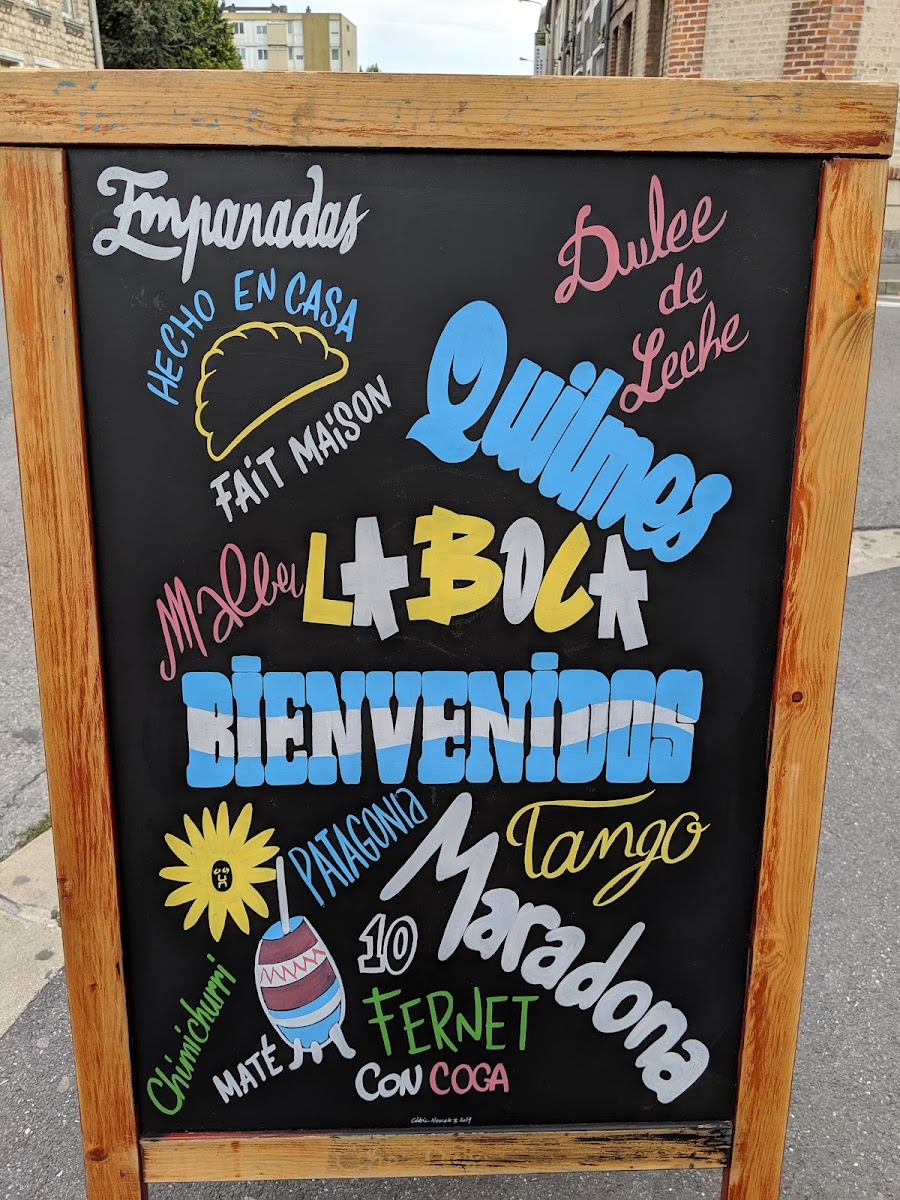 Empanadas
HECHO EN CASA
FAIT MAISON
Dulce
de
Leche
Quilmes
Malbec
LA BOCA
BIENVENIDOS
PATAGONIA
Tango
Maradona
10
Chimichurri
MATÉ
FERNET
CON COCA